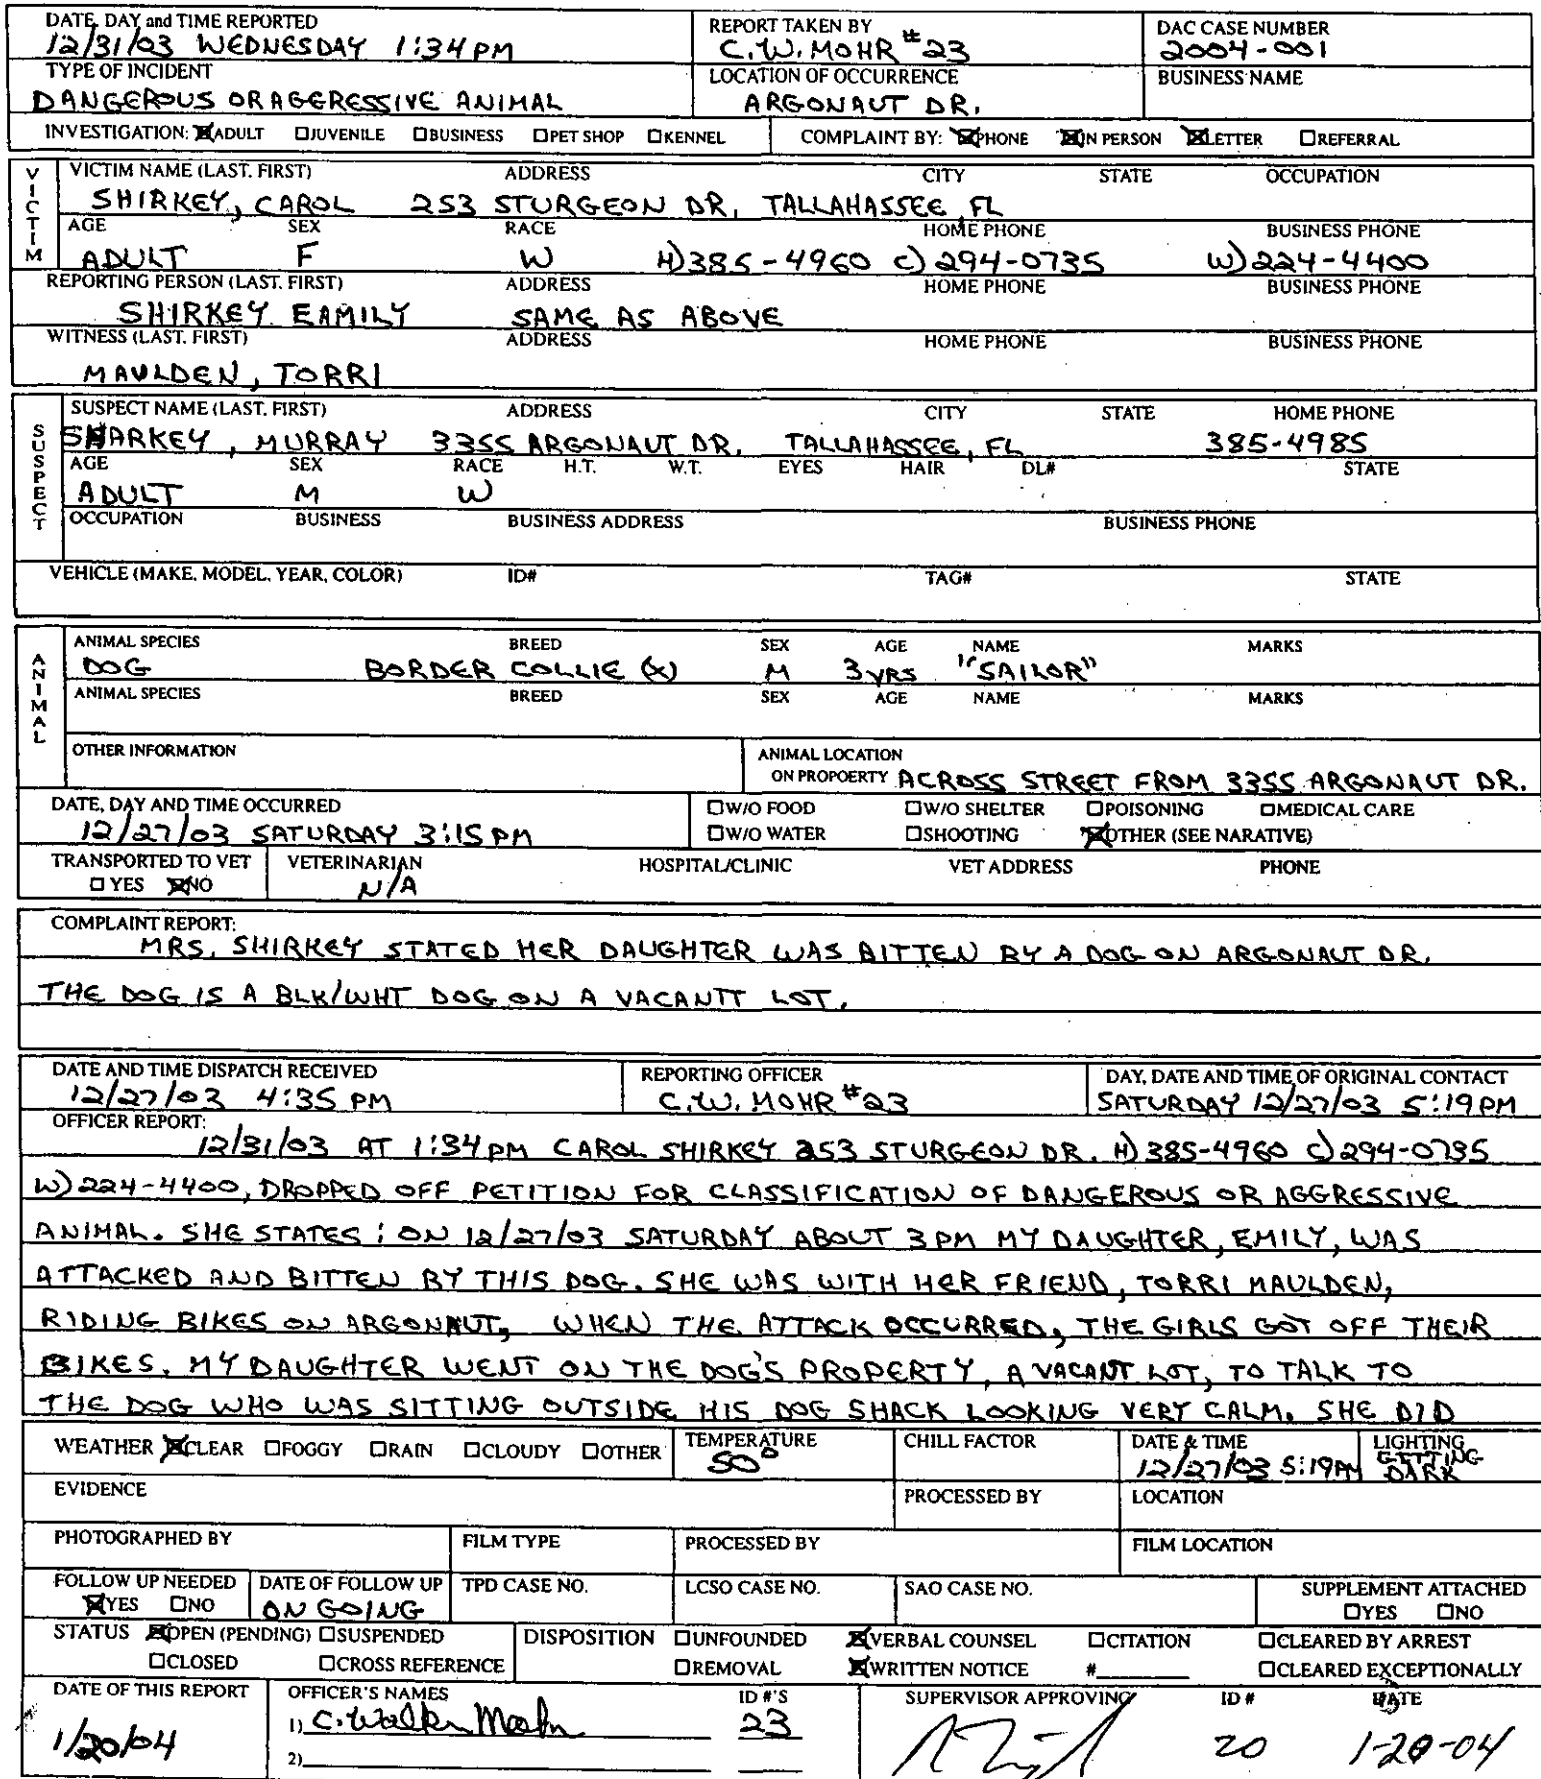 DATE, DAY and TIME REPORTED REPORT TAKEN BY DAC CASE NUMBER
12/31/03 WEDNESDAY 1:34 PM C.W. MOHR #23 2004-001
TYPE OF INCIDENT LOCATION OF OCCURRENCE BUSINESS NAME
DANGEROUS OR AGGRESSIVE ANIMAL ARGONAUT DR.
INVESTIGATION: ☒ADULT ☐JUVENILE ☐BUSINESS ☐PET SHOP ☐KENNEL COMPLAINT BY: ☒PHONE ☒IN PERSON ☒LETTER ☐REFERRAL
VICTIM
VICTIM NAME (LAST, FIRST) ADDRESS CITY STATE OCCUPATION
SHIRKEY, CAROL 253 STURGEON DR. TALLAHASSEE FL
AGE SEX RACE HOME PHONE BUSINESS PHONE
ADULT F W H) 385-4960 C) 294-0735 W) 224-4400
REPORTING PERSON (LAST, FIRST) ADDRESS HOME PHONE BUSINESS PHONE
SHIRKEY EAMILY SAME AS ABOVE
WITNESS (LAST, FIRST) ADDRESS HOME PHONE BUSINESS PHONE
MAULDEN, TORRI
SUSPECT
SUSPECT NAME (LAST, FIRST) ADDRESS CITY STATE HOME PHONE
SHARKEY, MURRAY 3355 ARGONAUT DR. TALLAHASSEE, FL 385-4985
AGE SEX RACE H.T. W.T. EYES HAIR DL# STATE
ADULT M W
OCCUPATION BUSINESS BUSINESS ADDRESS BUSINESS PHONE
VEHICLE (MAKE, MODEL, YEAR, COLOR) ID# TAG# STATE
ANIMAL
ANIMAL SPECIES BREED SEX AGE NAME MARKS
DOG BORDER COLLIE (X) M 3 YRS "SAILOR"
ANIMAL SPECIES BREED SEX AGE NAME MARKS
OTHER INFORMATION ANIMAL LOCATION
ON PROPOERTY ACROSS STREET FROM 3355 ARGONAUT DR.
DATE, DAY AND TIME OCCURRED ☐W/O FOOD ☐W/O SHELTER ☐POISONING ☐MEDICAL CARE
12/27/03 SATURDAY 3:15 PM ☐W/O WATER ☐SHOOTING ☒OTHER (SEE NARATIVE)
TRANSPORTED TO VET VETERINARIAN HOSPITAL/CLINIC VET ADDRESS PHONE
☐YES ☒NO N/A
COMPLAINT REPORT:
MRS. SHIRKEY STATED HER DAUGHTER WAS BITTEN BY A DOG ON ARGONAUT DR.
THE DOG IS A BLK/WHT DOG ON A VACANTT LOT.
DATE AND TIME DISPATCH RECEIVED REPORTING OFFICER DAY, DATE AND TIME OF ORIGINAL CONTACT
12/27/03 4:35 PM C.W. MOHR #23 SATURDAY 12/27/03 5:19 PM
OFFICER REPORT:
12/31/03 AT 1:34 PM CAROL SHIRKEY 253 STURGEON DR. H) 385-4960 C) 294-0735
W) 224-4400, DROPPED OFF PETITION FOR CLASSIFICATION OF DANGEROUS OR AGGRESSIVE
ANIMAL. SHE STATES: ON 12/27/03 SATURDAY ABOUT 3 PM MY DAUGHTER, EMILY, WAS
ATTACKED AND BITTEN BY THIS DOG. SHE WAS WITH HER FRIEND, TORRI MAULDEN,
RIDING BIKES ON ARGONAUT, WHEN THE ATTACK OCCURRED, THE GIRLS GOT OFF THEIR
BIKES. MY DAUGHTER WENT ON THE DOG'S PROPERTY, A VACANT LOT, TO TALK TO
THE DOG WHO WAS SITTING OUTSIDE HIS DOG SHACK LOOKING VERY CALM. SHE DID
WEATHER ☒CLEAR ☐FOGGY ☐RAIN ☐CLOUDY ☐OTHER TEMPERATURE CHILL FACTOR DATE & TIME LIGHTING
50° 12/27/03 5:19PM GETTING DARK
EVIDENCE PROCESSED BY LOCATION
PHOTOGRAPHED BY FILM TYPE PROCESSED BY FILM LOCATION
FOLLOW UP NEEDED DATE OF FOLLOW UP TPD CASE NO. LCSO CASE NO. SAO CASE NO. SUPPLEMENT ATTACHED
☒YES ☐NO ON GOING ☐YES ☐NO
STATUS ☒OPEN (PENDING) ☐SUSPENDED DISPOSITION ☐UNFOUNDED ☒VERBAL COUNSEL ☐CITATION ☐CLEARED BY ARREST
☐CLOSED ☐CROSS REFERENCE ☐REMOVAL ☒WRITTEN NOTICE #________ ☐CLEARED EXCEPTIONALLY
DATE OF THIS REPORT OFFICER'S NAMES ID #'S SUPERVISOR APPROVING ID # DATE
1/20/04 1) C. Walker Mohr 23 20 1-20-04
2)